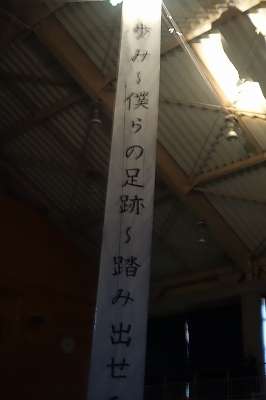 歩み～僕らの足跡～踏み出せ